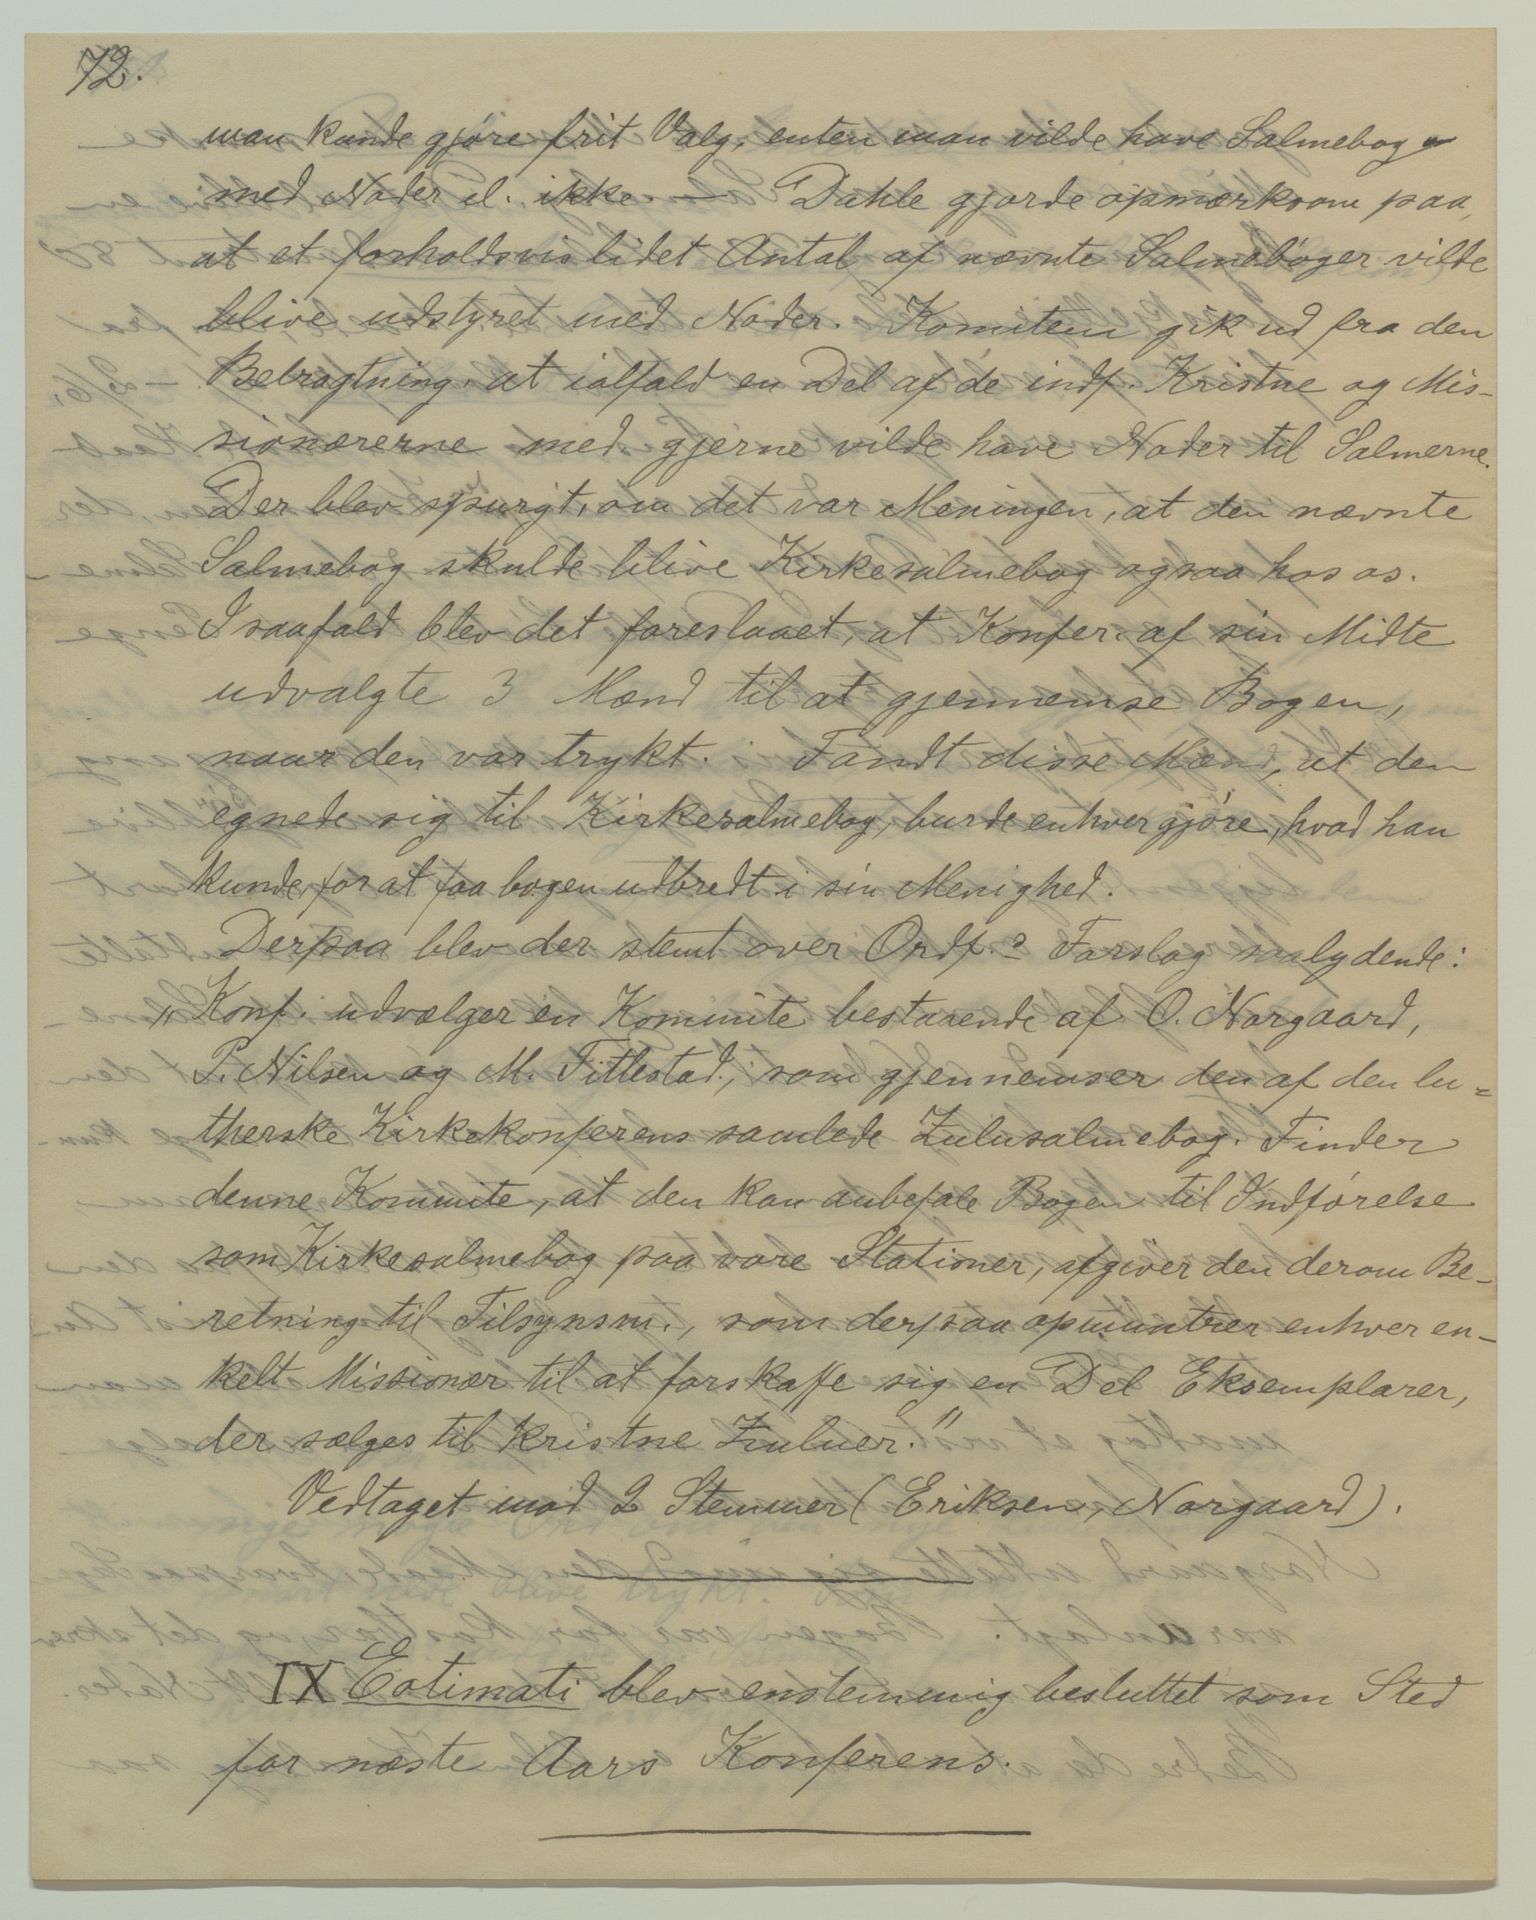 72.
man kunde gjøre frit Valg, enten man vilde have Salmebog
med Noder el. ikke. — Dahle gjorde opmærksom paa,
at et forholdsvis lidet Antal af nævnte Salmebøger vilde
blive udstyret med Noder. Komiteen gik ud fra den
Betragtning, at ialfald en Del af de indf. Kristne og Mis-
sionærerne med gjerne vilde have Noder til Salmerne.
Der blev spurgt, om det var Meningen, at den nævnte
Salmebog skulde blive Kirkesalmebog ogsaa hos os.
I saafald blev det foreslaaet, at Konfer. af sin Midte
udvalgte 3 Mænd til at gjennemse Bogen,
naar den var trykt. Fandt disse Mænd, at den
egnede sig til Kirkesalmebog, burde enhver gjøre, hvad han
kunde, for at faa bogen udbredt i sin Menighed.
Derpaa blev der stemt over Ordf.s Forslag saalydende:
"Konf. udvælger en Kommite bestaaende af O. Norgaard,
P. Nilsen og M. Titlestad, som gjennemser den af den lu=
therske Kirkekonferens samlede Zulusalmebog. Finder
denne Kommite, at den kan anbefale Bogen til Indførelse
som Kirkesalmebog paa vore Stationer, afgiver den derom Be-
retning til Tilsynsm., som derpaa opmuntrer enhver en-
kelt Missionær til at forskaffe sig en Del Eksemplarer,
der sælges til kristne Zuluer."
Vedtaget mod 2 Stemmer (Eriksen, Norgaard).
IX Eotimati blev enstemmig besluttet som Sted
for næste Aars Konferens.